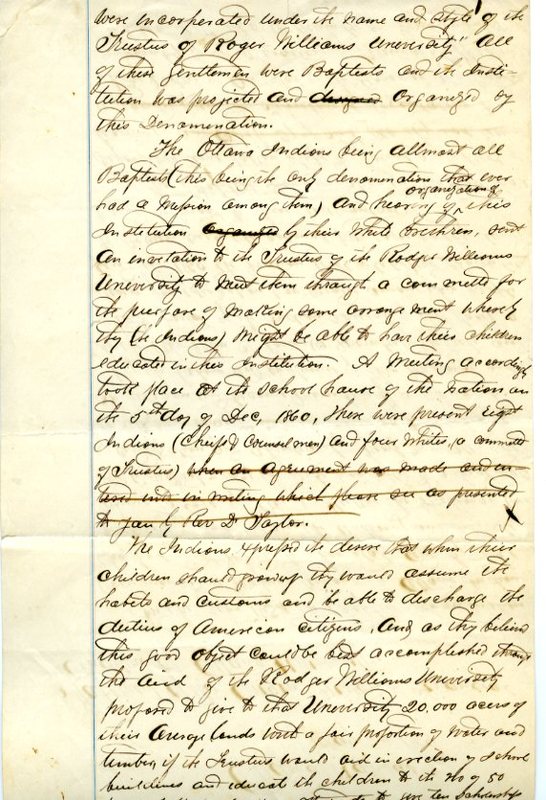 were incorporated under the name and style of the
Trustus of Roger Williams Uneversity" All
of these Gentlemen were Baptists and the Insti-
tution was projected and organized by
this Denomenation.
The Ottawa Indians being allmost all
Baptists (this being the only denomenation that ever
had a Mission among them) and hearing of organization of this
Institution organized by their White brethren, sent
an invetation to the Trustus of the Rodger Williams
Uneversity to Meet them through a committe for
the purpose of making some arrangement whereby
they (the Indians) might be able to have their children
educated in this Institution. A Meeting accordingly
took place at the school house of the nation on
the 5th day of Dec, 1860, There were present Eight
Indians (Chiefs & Counselmen) and four Whites, (a committe
of Trustus) when an agreement was made and en-
tered into in writing which please see as presented
to you by Rev D. Taylor.
The Indians expressed the desire that when their
children should growup they would assume the
habits and customs and be able to discharge the
duties of Amerecan citizens, And as they believed
this good object could be best accomplished through
the aid of the Rodger Williams Uneversity
proposed to give to that Uneversity 20,000 acres of
their Average lands with a fair proportion of water and
timber, if the Trustus would aid in erection of school
buildings and educate the children to the No of 50
ten scholarships